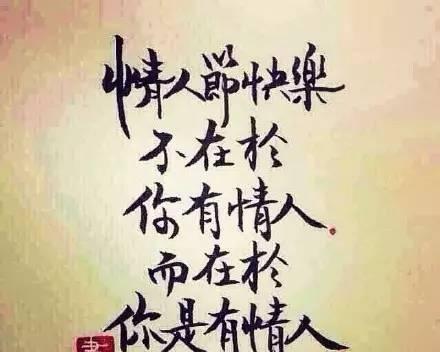 情人節快樂
不在於
你有情人
而在於
你是有情人